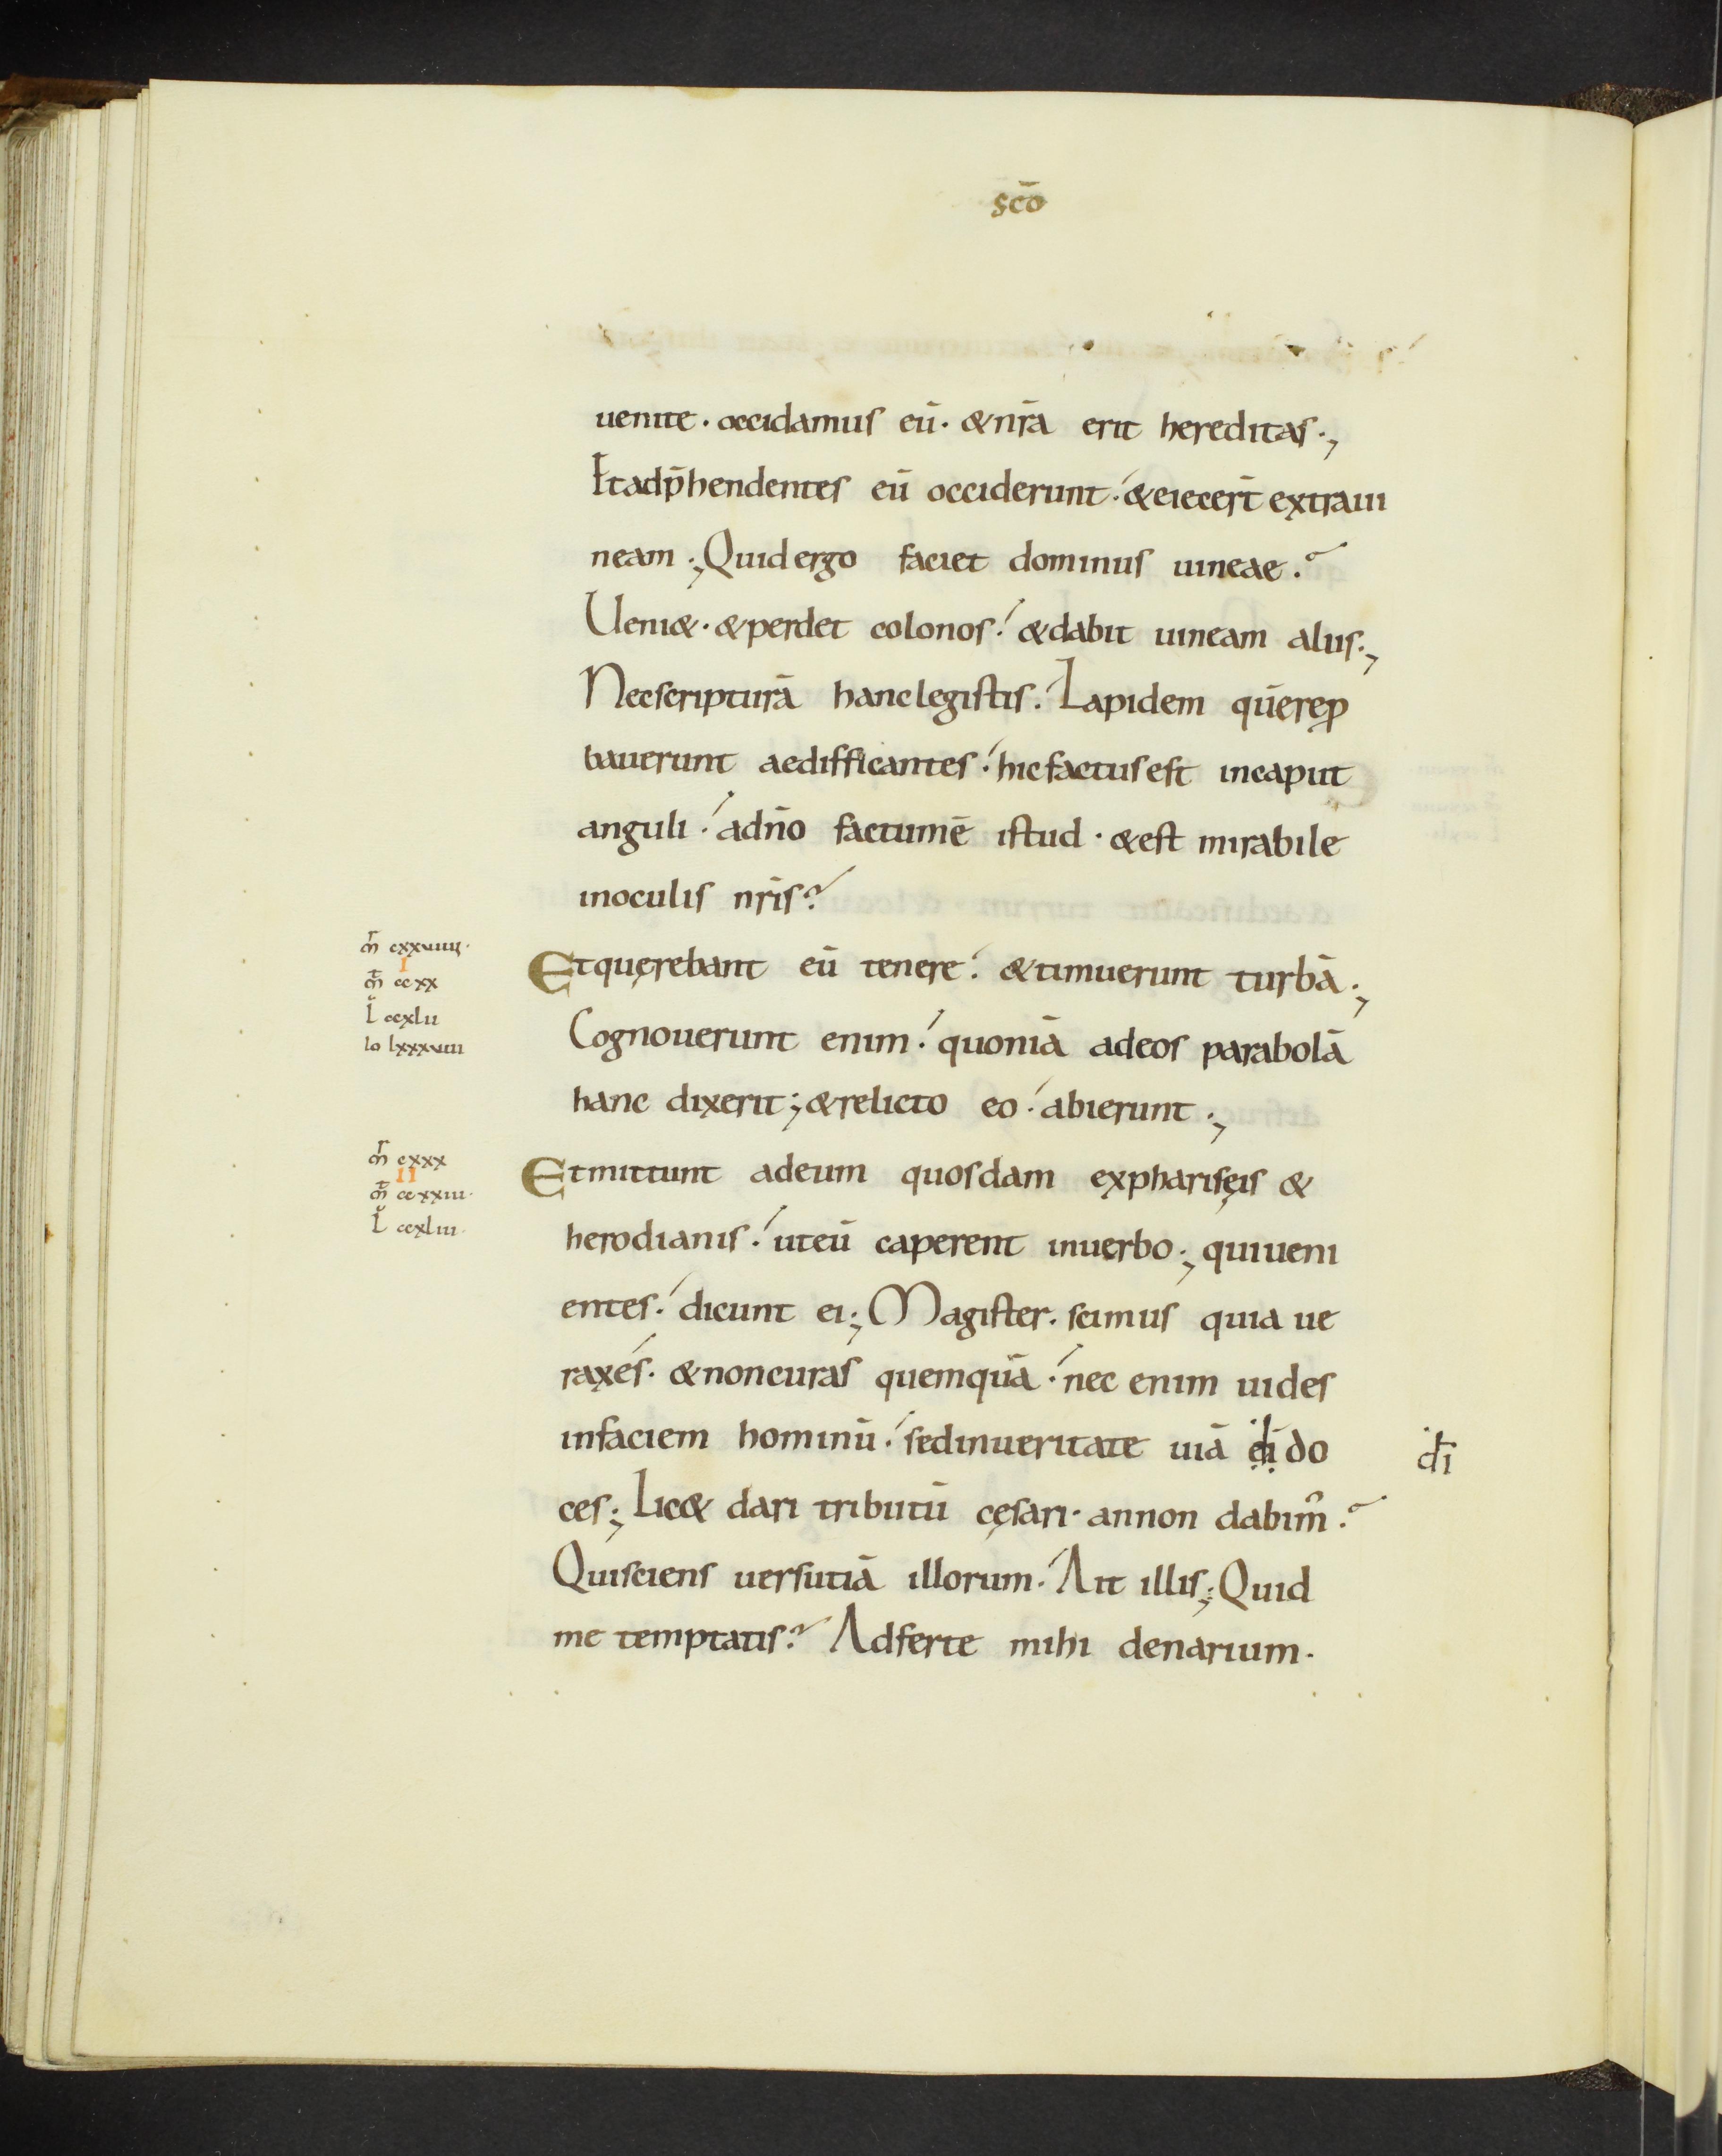 sc̄o
uenite · occidamus eū · & nr̄a erit hereditas .,
Et adp̄hendentes eū occiderunt · & eiecer̄t extra ui
neam ; Quid ergo faciet dominus uineae .?
Ueni& · & perdet colonos · & dabit uineam aliis .,
Nec scripturā hanc legistis · Lapidem quē rep̱ro
bauerunt aedifficantes · hic factus est in caput
anguli · a dn̄o factum ē istud · & est mirabile
in oculis nr̄is ?
m̄r cxxuiiii ·
I
m̄t ccxx
L̆ ccxlii
Io lxxxuiii
Et quęrebant eū tenere · & timuerunt turbā .,
Cognouerunt enim · quoniā ad eos parabolā
hanc dixerit ; & relicto eo · abierunt .,
m̄r cxxx
II
m̄t ccxxiii ·
L̆ ccxliii ·
Et mittunt ad eum quosdam ex pharisęis &
herodianis · ut eū caperent in uerbo ., qui ueni
entes · dicunt ei ; Magister · scimus quia ue
rax és · & non curas quemquā · nec enim uides
in faciem hominū · sed in ueritate uiā dī do
dī
ces ; Lic& dari tributū cęsari · an non dabim̕ .?
Qui sciens uersutiā illorum · Ait illis ; Quid
me temptatis ? Adferte mihi denarium ·